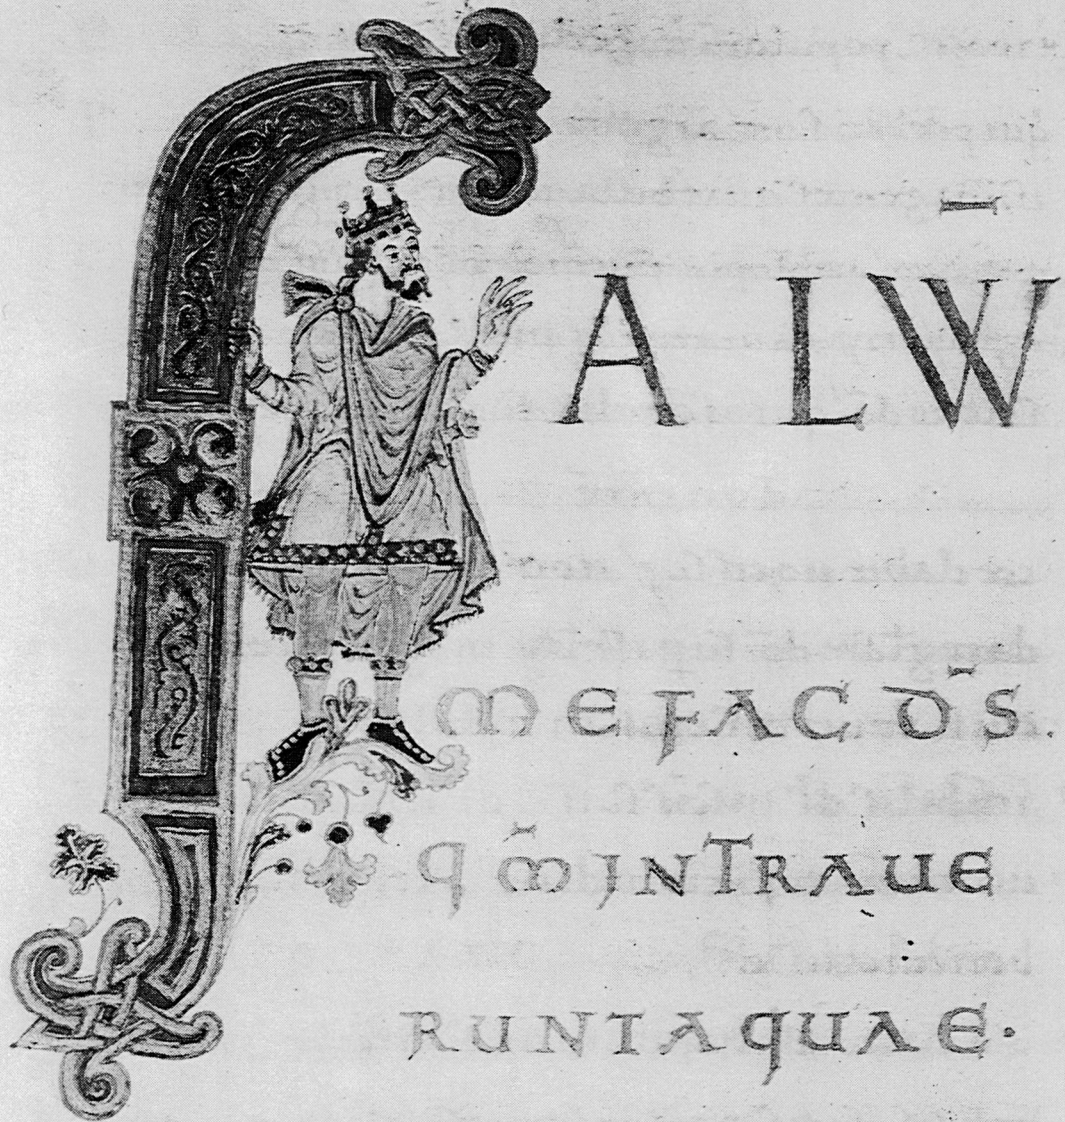 SALW̄
ME FAC DS̄.
qm̄ INTRAUE
RUNT AQUAE·